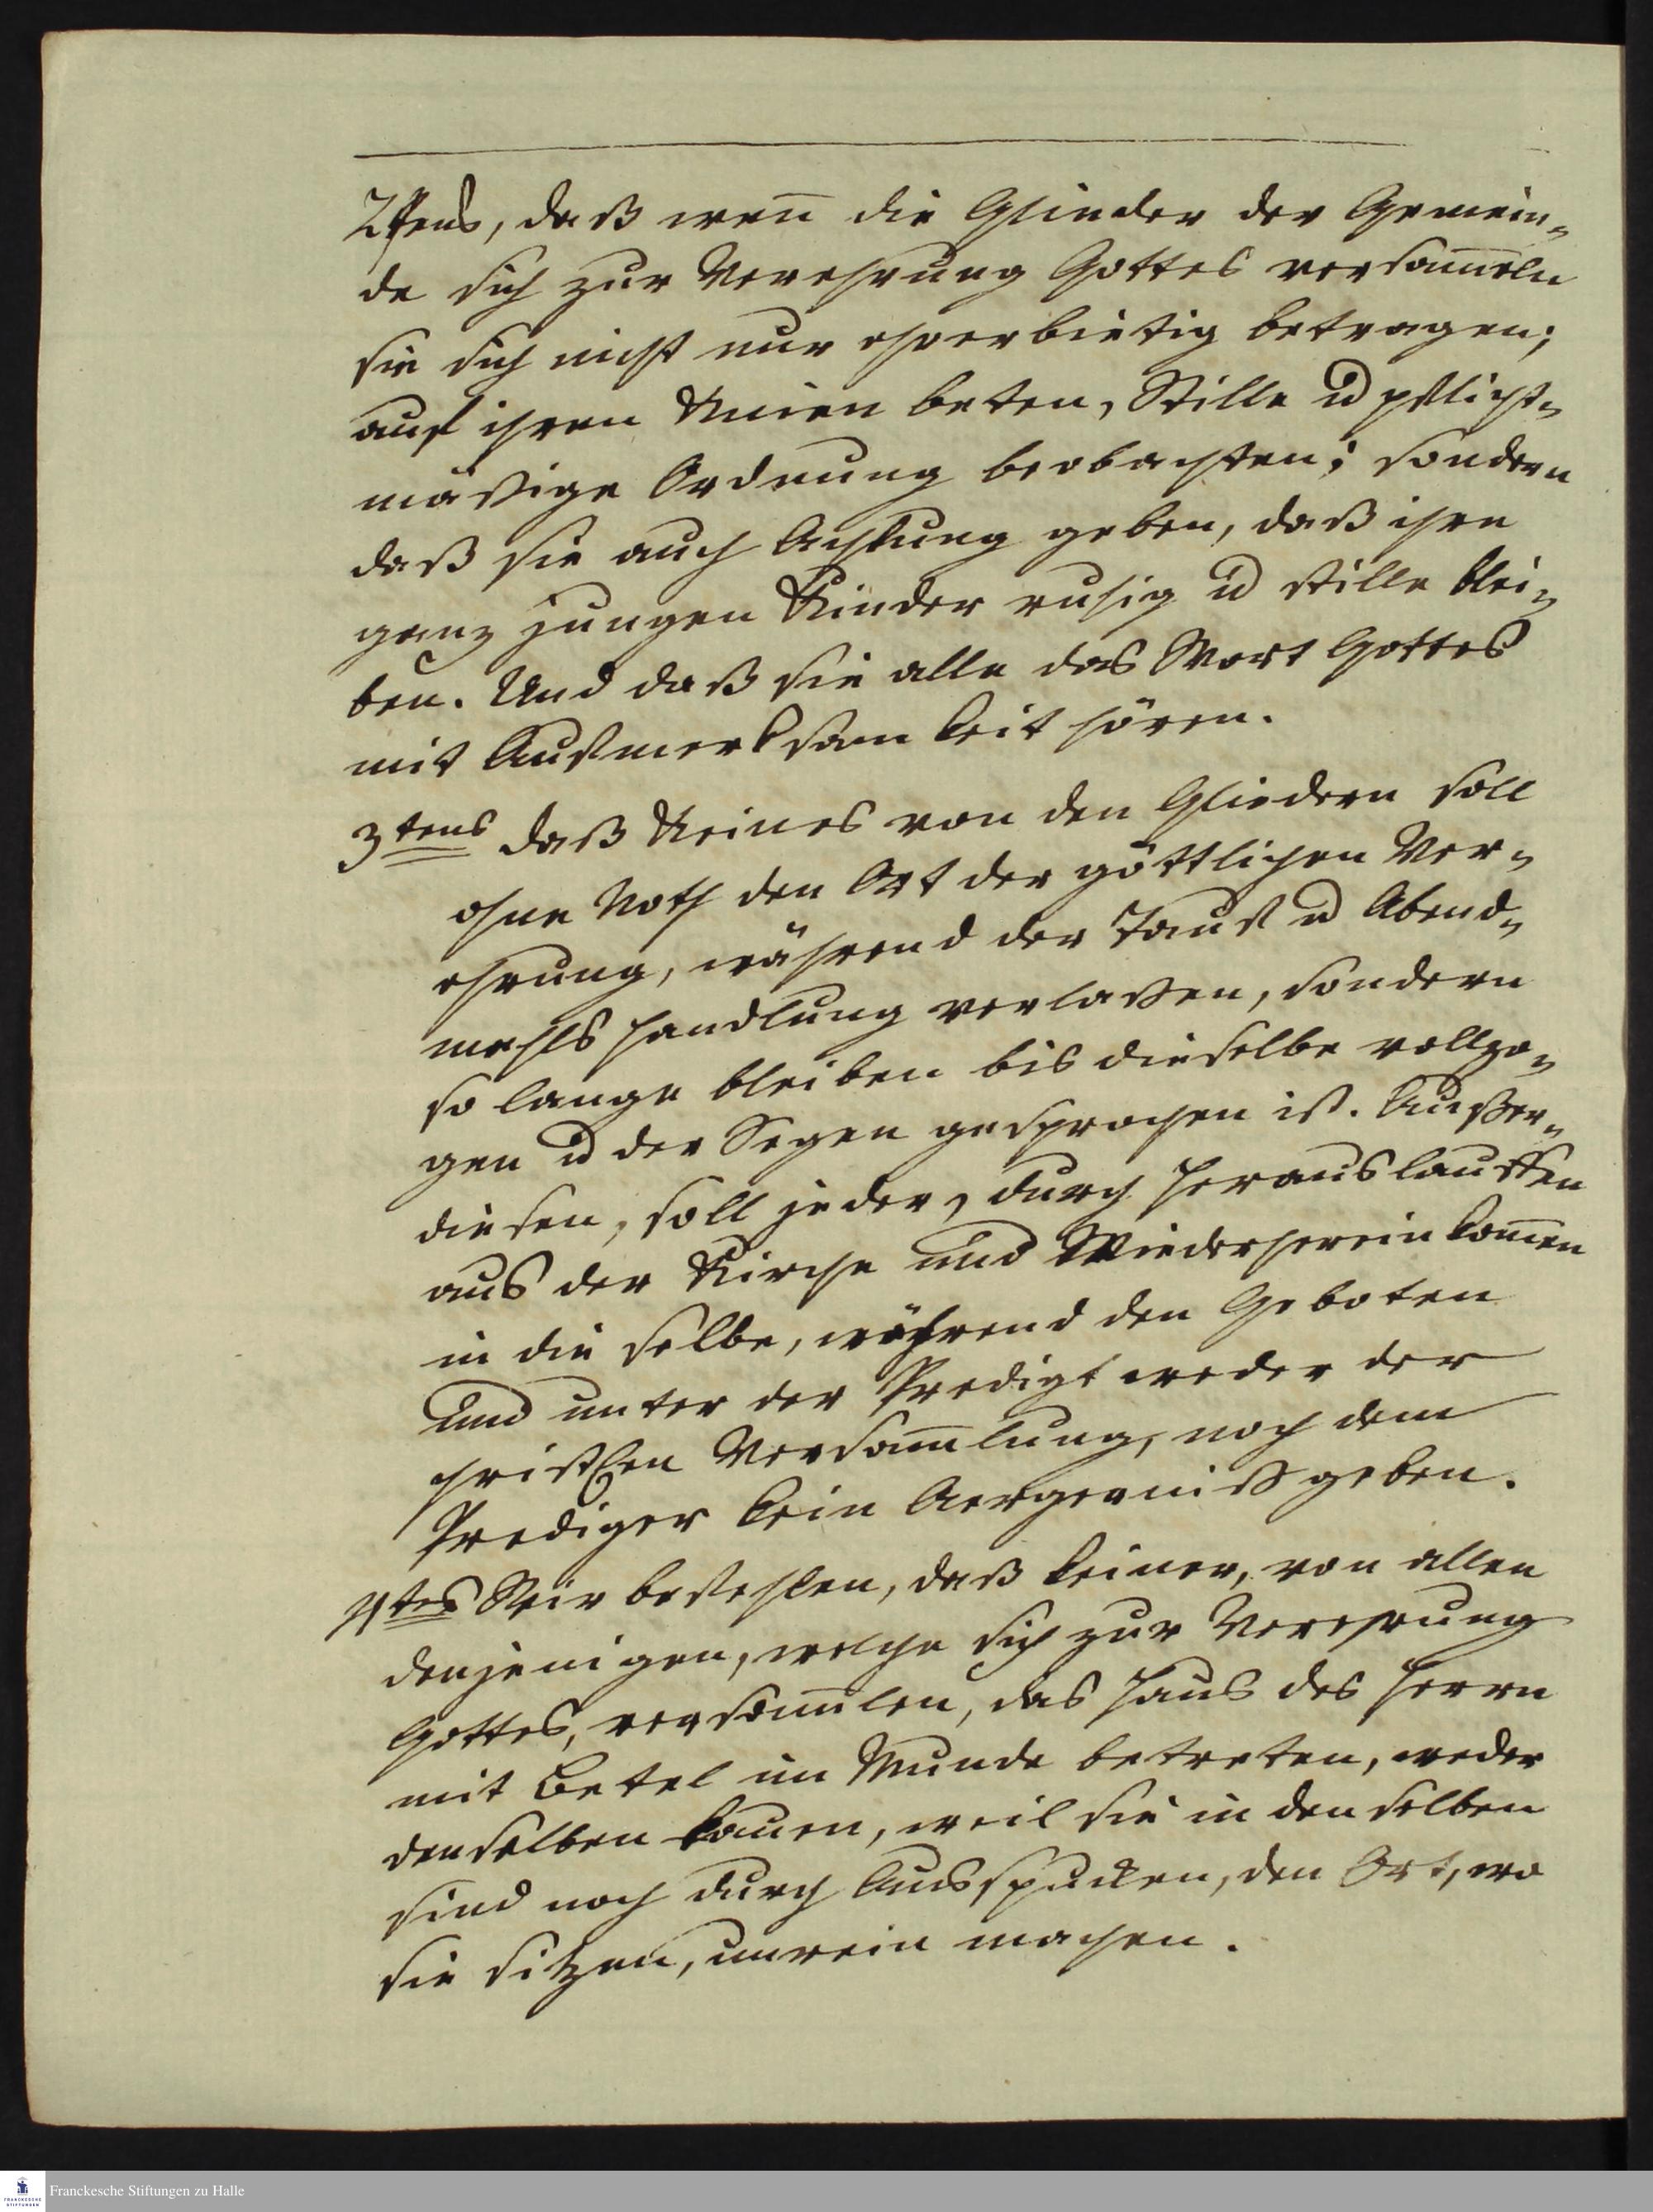 2tens, daß wen̄ die Glieder der Gemein-
de sich zur Verehrung Gottes versam̄eln
sie sich nicht nur ehrerbietig betragen;
auf ihren Knien beten, Stille u͂d pflicht-
mäßige Ordnung beobachten; sondern
daß sie auch Achtung geben, daß ihre
ganz jungen Kinder ruhig u͂d stille blei-
ben. Und daß sie alle das Wort Gottes
mit Aufmerksam keit hören.
3tens daß Keines von den Gliedern soll
ohne Noth den Ort der göttlichen Ver-
ehrung, während der Tauf u͂d Abend-
mahls handlung verlaßen, sondern
so lange bleiben bis dieselbe vollzo-
gen u͂d der Segen gesprochen ist. Außer-
diesen, soll jeder, durch Herauslauffen
aus der Kirche und Wiederherein kom̄en
in die selbe, während den Geboten
und unter der Predigt weder der
christlen Versam̄lung, noch dem
Prediger kein Aergerniß geben.
4tes Wir befehlen, daß keiner, von allen
denjenigen, welche sich zur Verehrung
Gottes, versam̄len, das Haus des Herrn
mit Betel im Munde betreten, weder
denselben kauen, weil sie in denselben
sind noch durch Ausspucken, den Ort, wo
sie sitzen, unrein machen.
Franckesche Stiftungen zu Halle
FRANCKESCHE
STIFTUNGEN